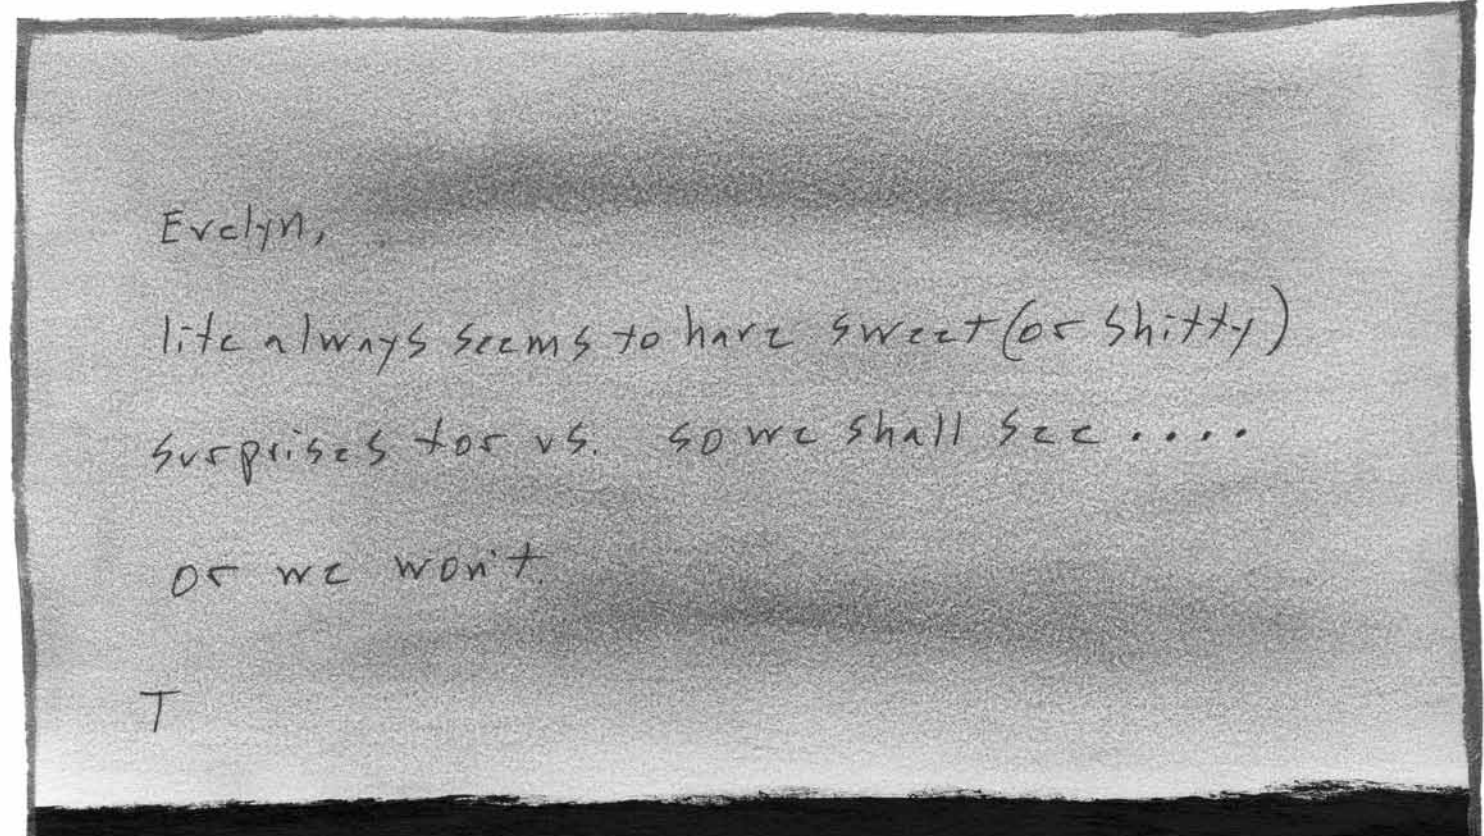 Evelyn,
life always seems to have sweet (or shitty)
surprises for us. so we shall see ....
or we won't.
T